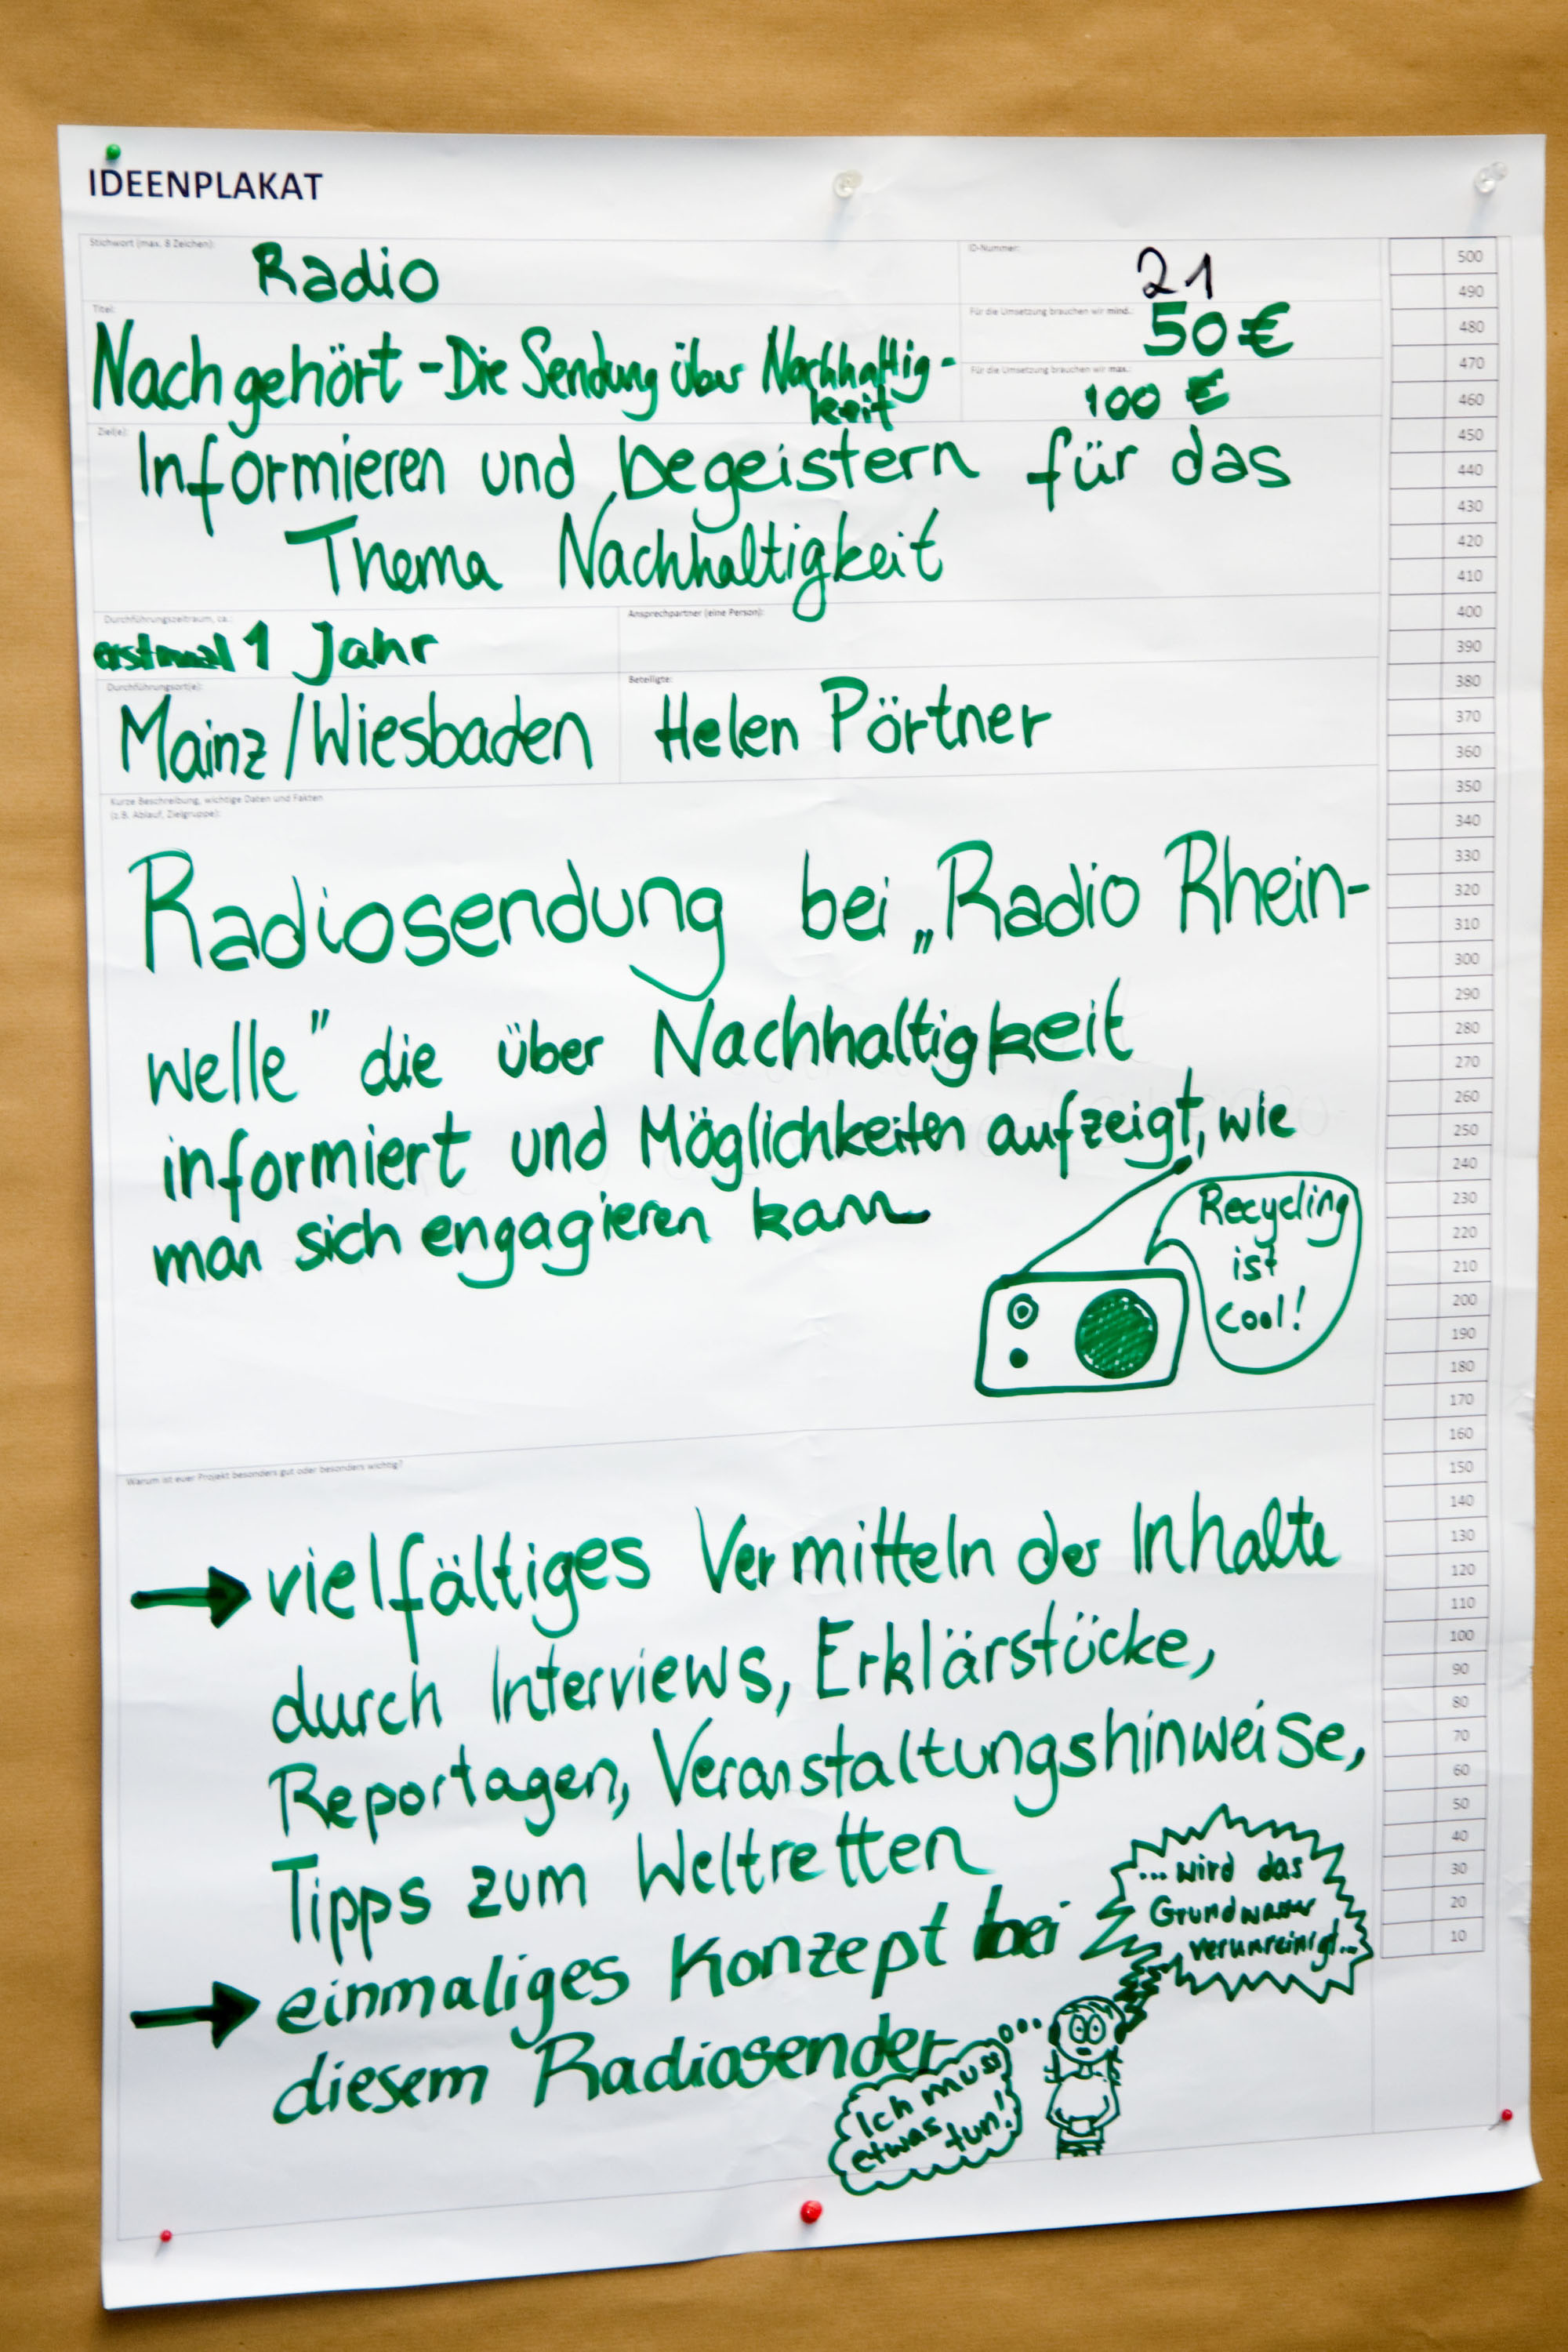 IDEENPLAKAT
Stichwort (max. 8 Zeichen):
Radio
ID-Nummer:
21
Titel:
Nachgehört - Die Sendung über Nachhaltig-
keit
Für die Umsetzung brauchen wir mind.:
50 €
Für die Umsetzung brauchen wir max.:
100 €
Ziel(e):
Informieren und begeistern für das
Thema Nachhaltigkeit
Durchführungszeitraum, ca.:
erstmal 1 Jahr
Ansprechpartner (eine Person):
Durchführungsort(e):
Mainz/Wiesbaden
Beteiligte:
Helen Pörtner
Kurze Beschreibung, wichtige Daten und Fakten
(z.B. Ablauf, Zielgruppe):
Radiosendung bei „Radio Rhein-
welle" die über Nachhaltigkeit
informiert und Möglichkeiten aufzeigt, wie
man sich engagieren kann
Recycling
ist
cool!
Warum ist euer Projekt besonders gut oder besonders wichtig?
→ vielfältiges Vermitteln der Inhalte
durch Interviews, Erklärstücke,
Reportagen, Veranstaltungshinweise,
Tipps zum Weltretten
→ einmaliges Konzept bei
diesem Radiosender
...wird das
Grundwasser
verunreinigt...
Ich muss
etwas tun!
500
490
480
470
460
450
440
430
420
410
400
390
380
370
360
350
340
330
320
310
300
290
280
270
260
250
240
230
220
210
200
190
180
170
160
150
140
130
120
110
100
90
80
70
60
50
40
30
20
10